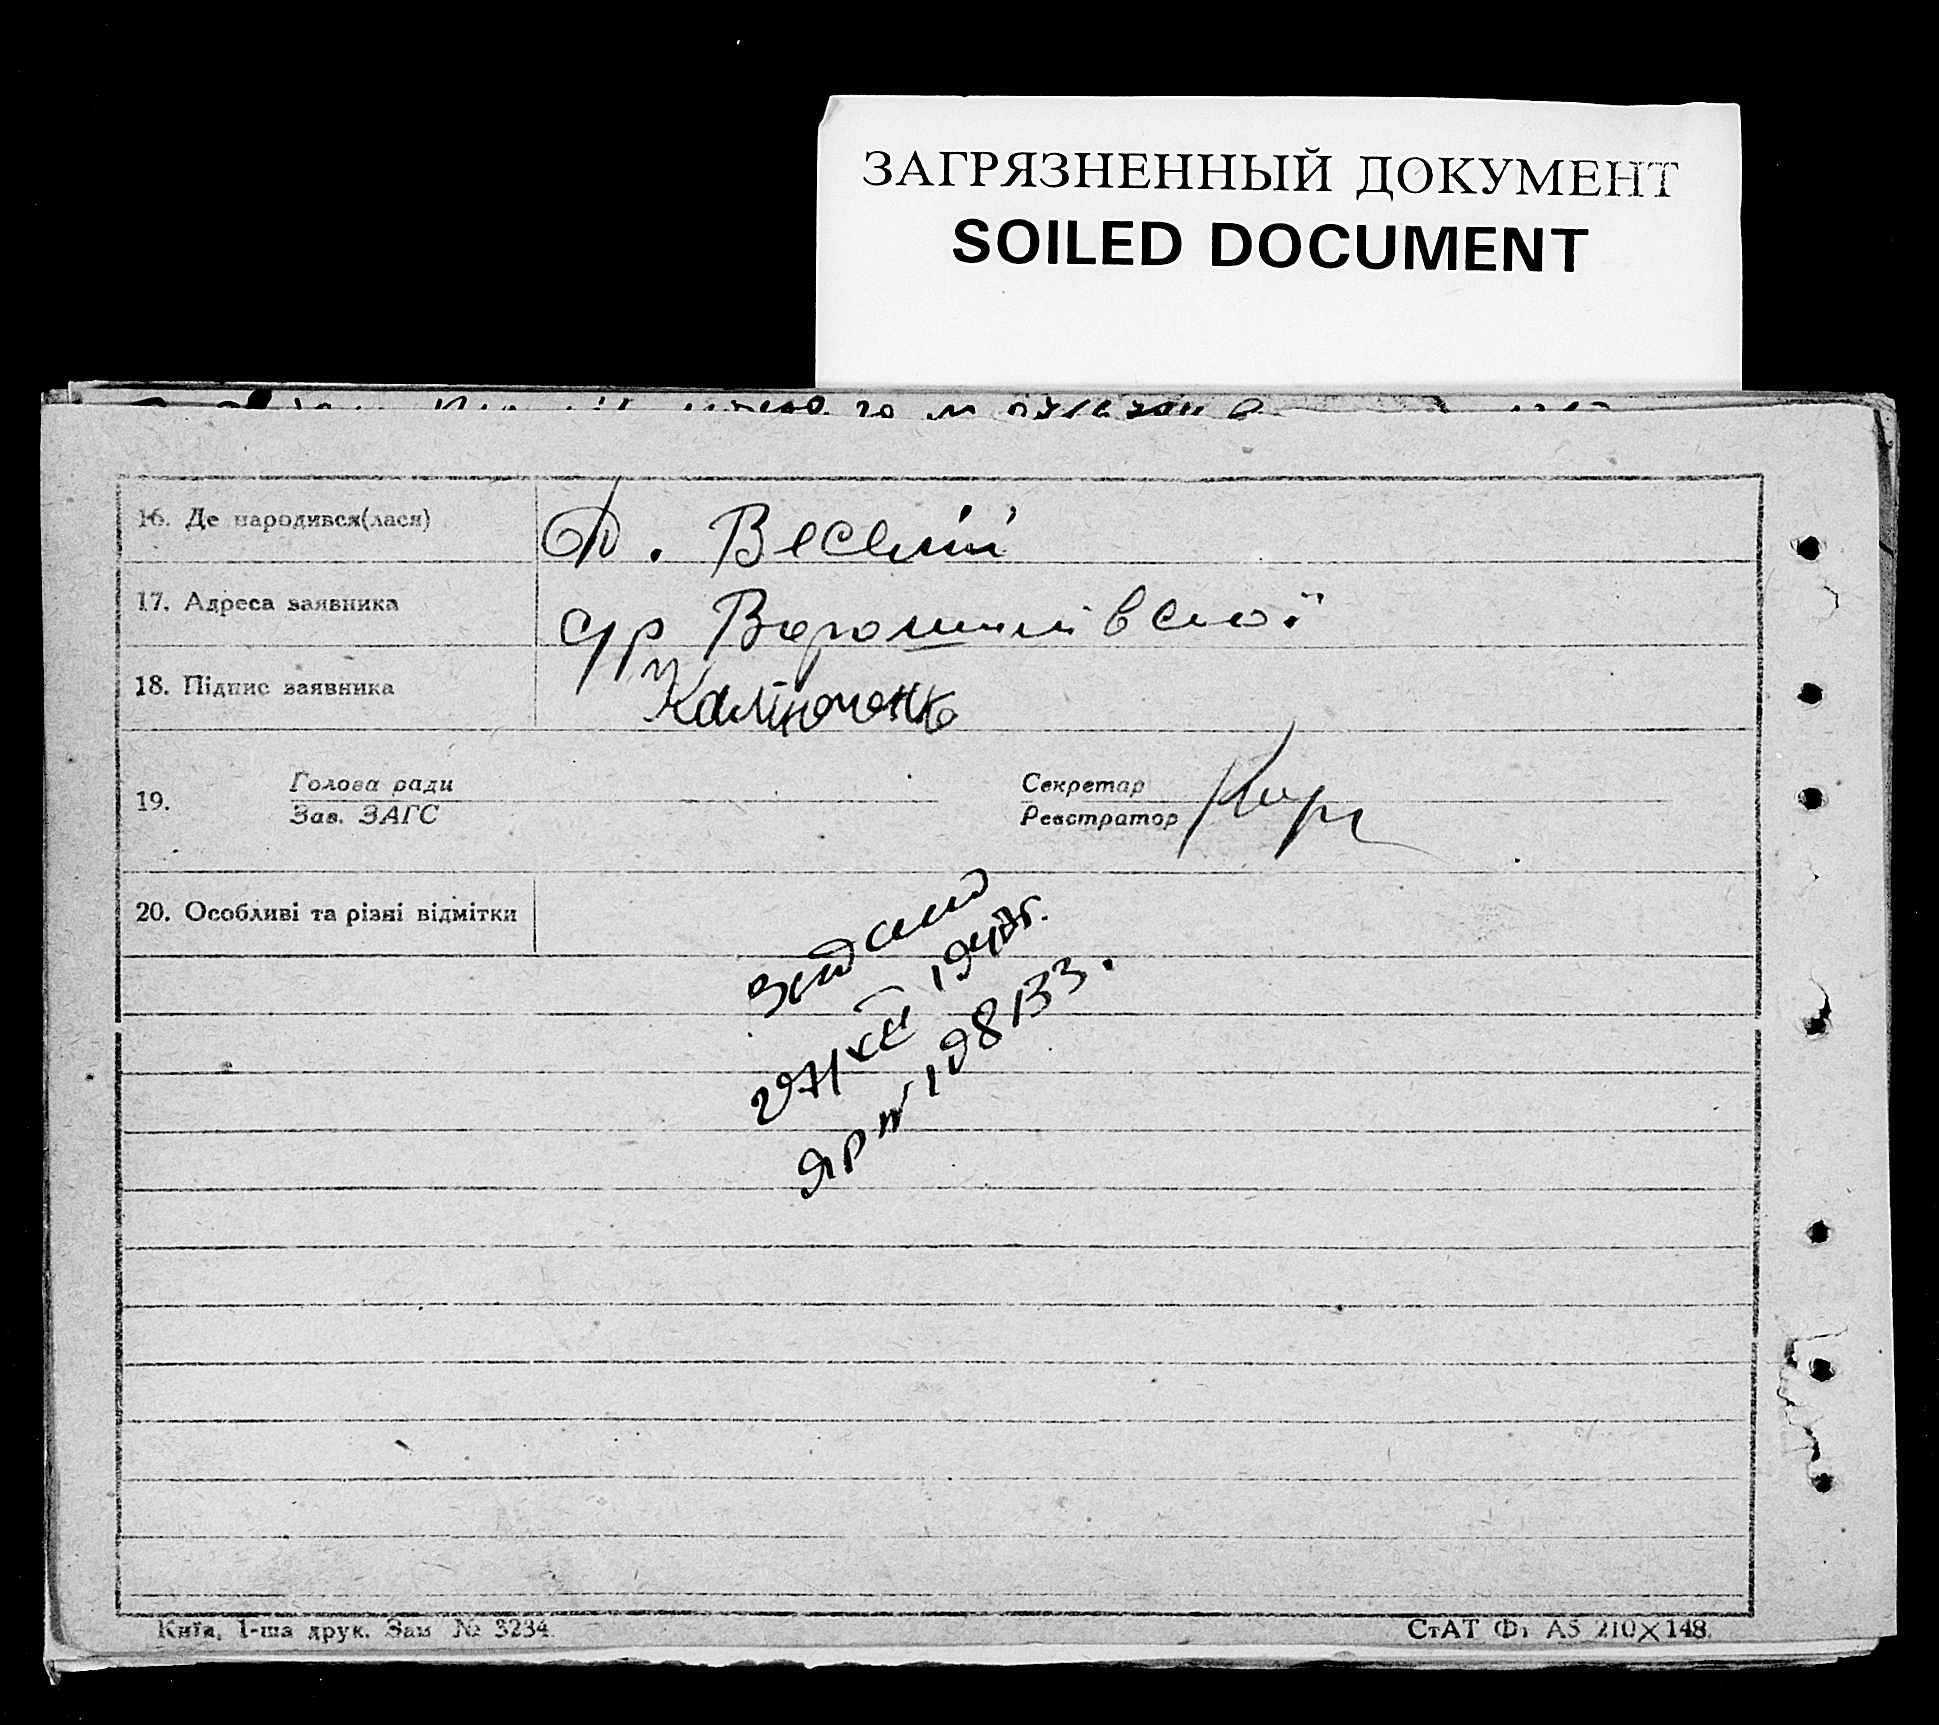 ЗАГРЯЗНЕННЫЙ ДОКУМЕНТ
SOILED DOCUMENT
16. Де народився(лася)
Веселий
17. Адреса заявника
с/р Ворошилівської
18. Підпис заявника
19. Голова ради
Зав. ЗАГС
Секретар
Реєстратор
20. Особливі та різні відмітки
1947г.
ЯР № 198133.
Київ, 1-ша друк. Зам № 3234.
СтАТ Ф. А5 210×148.